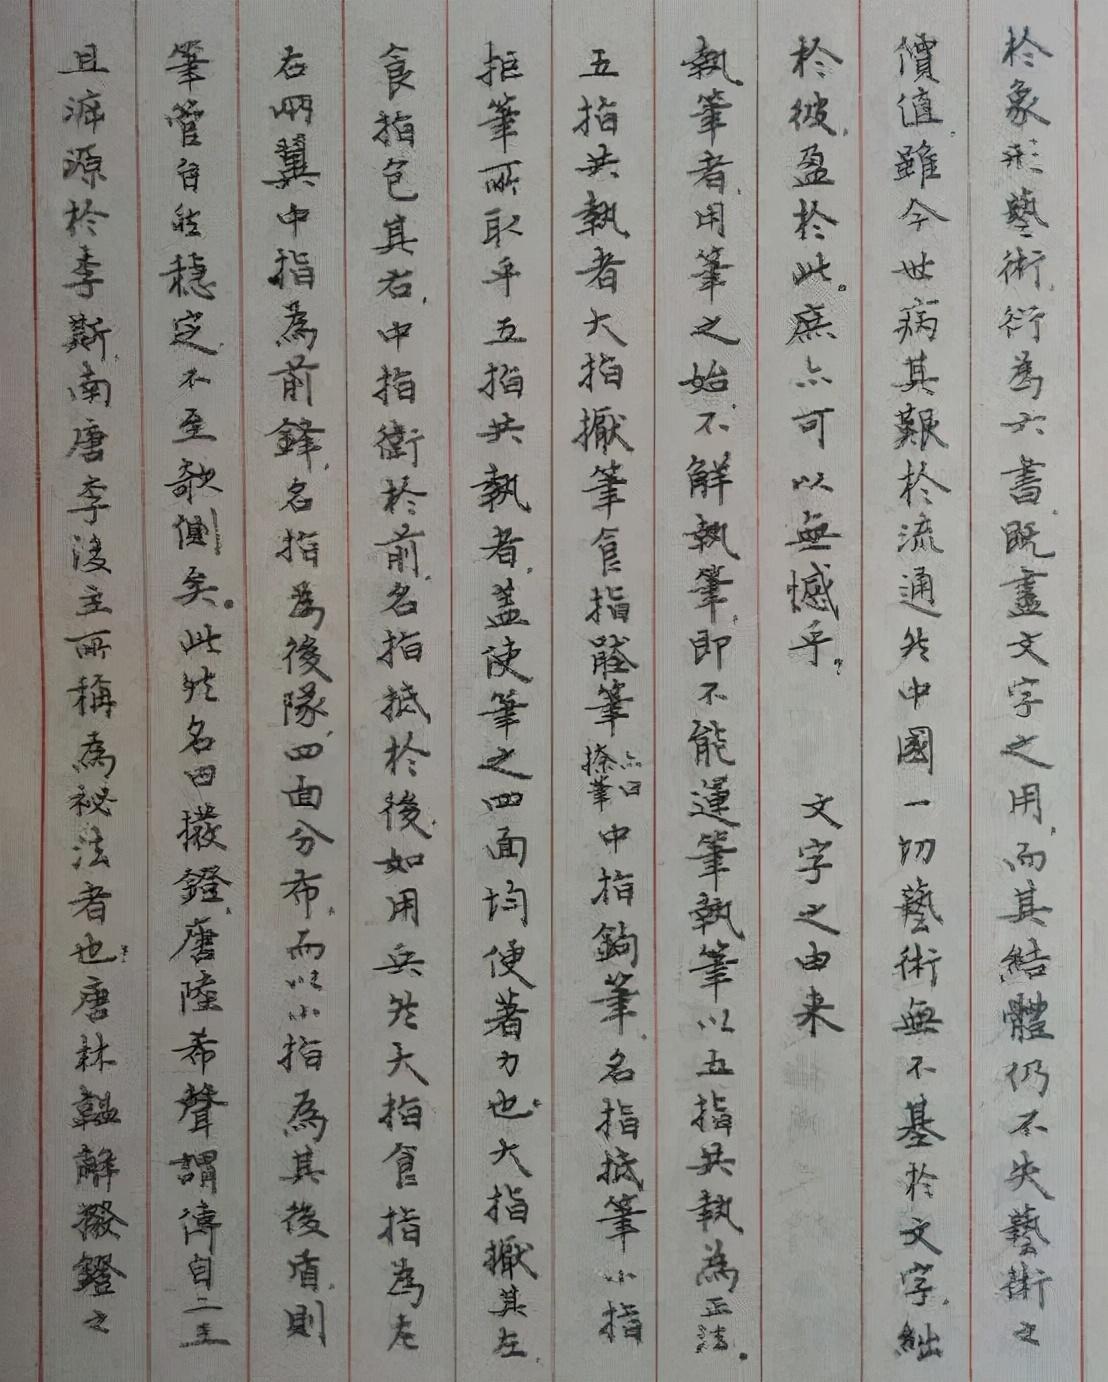 於象形藝術,衍為六書,既盡文字之用,而其結體仍不失藝術之
價值,雖今世病其艱於流通,然中國一切藝術無不基於文字,絀
於彼,盈於此。庶亦可以無憾乎。 文字之由来
執筆者,用筆之始,不解執筆,即不能運筆,執筆以五指共執為正法。
五指共執者大指擫筆食指壓筆亦曰㨷筆中指鉤筆,名指抵筆小指
拒筆所取乎五指共執者,蓋使筆之四面均便著力也。大指擫其左,
食指包其右,中指衛於前,名指抵於後,如用兵然大指食指為左
右兩翼中指為前鋒,名指為後隊,四面分布,而以小指為其後盾,則
筆管自然穩定,不至欹側矣。此然名曰撥鐙,唐陸希聲謂傳自二王
且溯源於李斯,南唐李後主所稱為祕法者也。唐林韞解撥鐙之